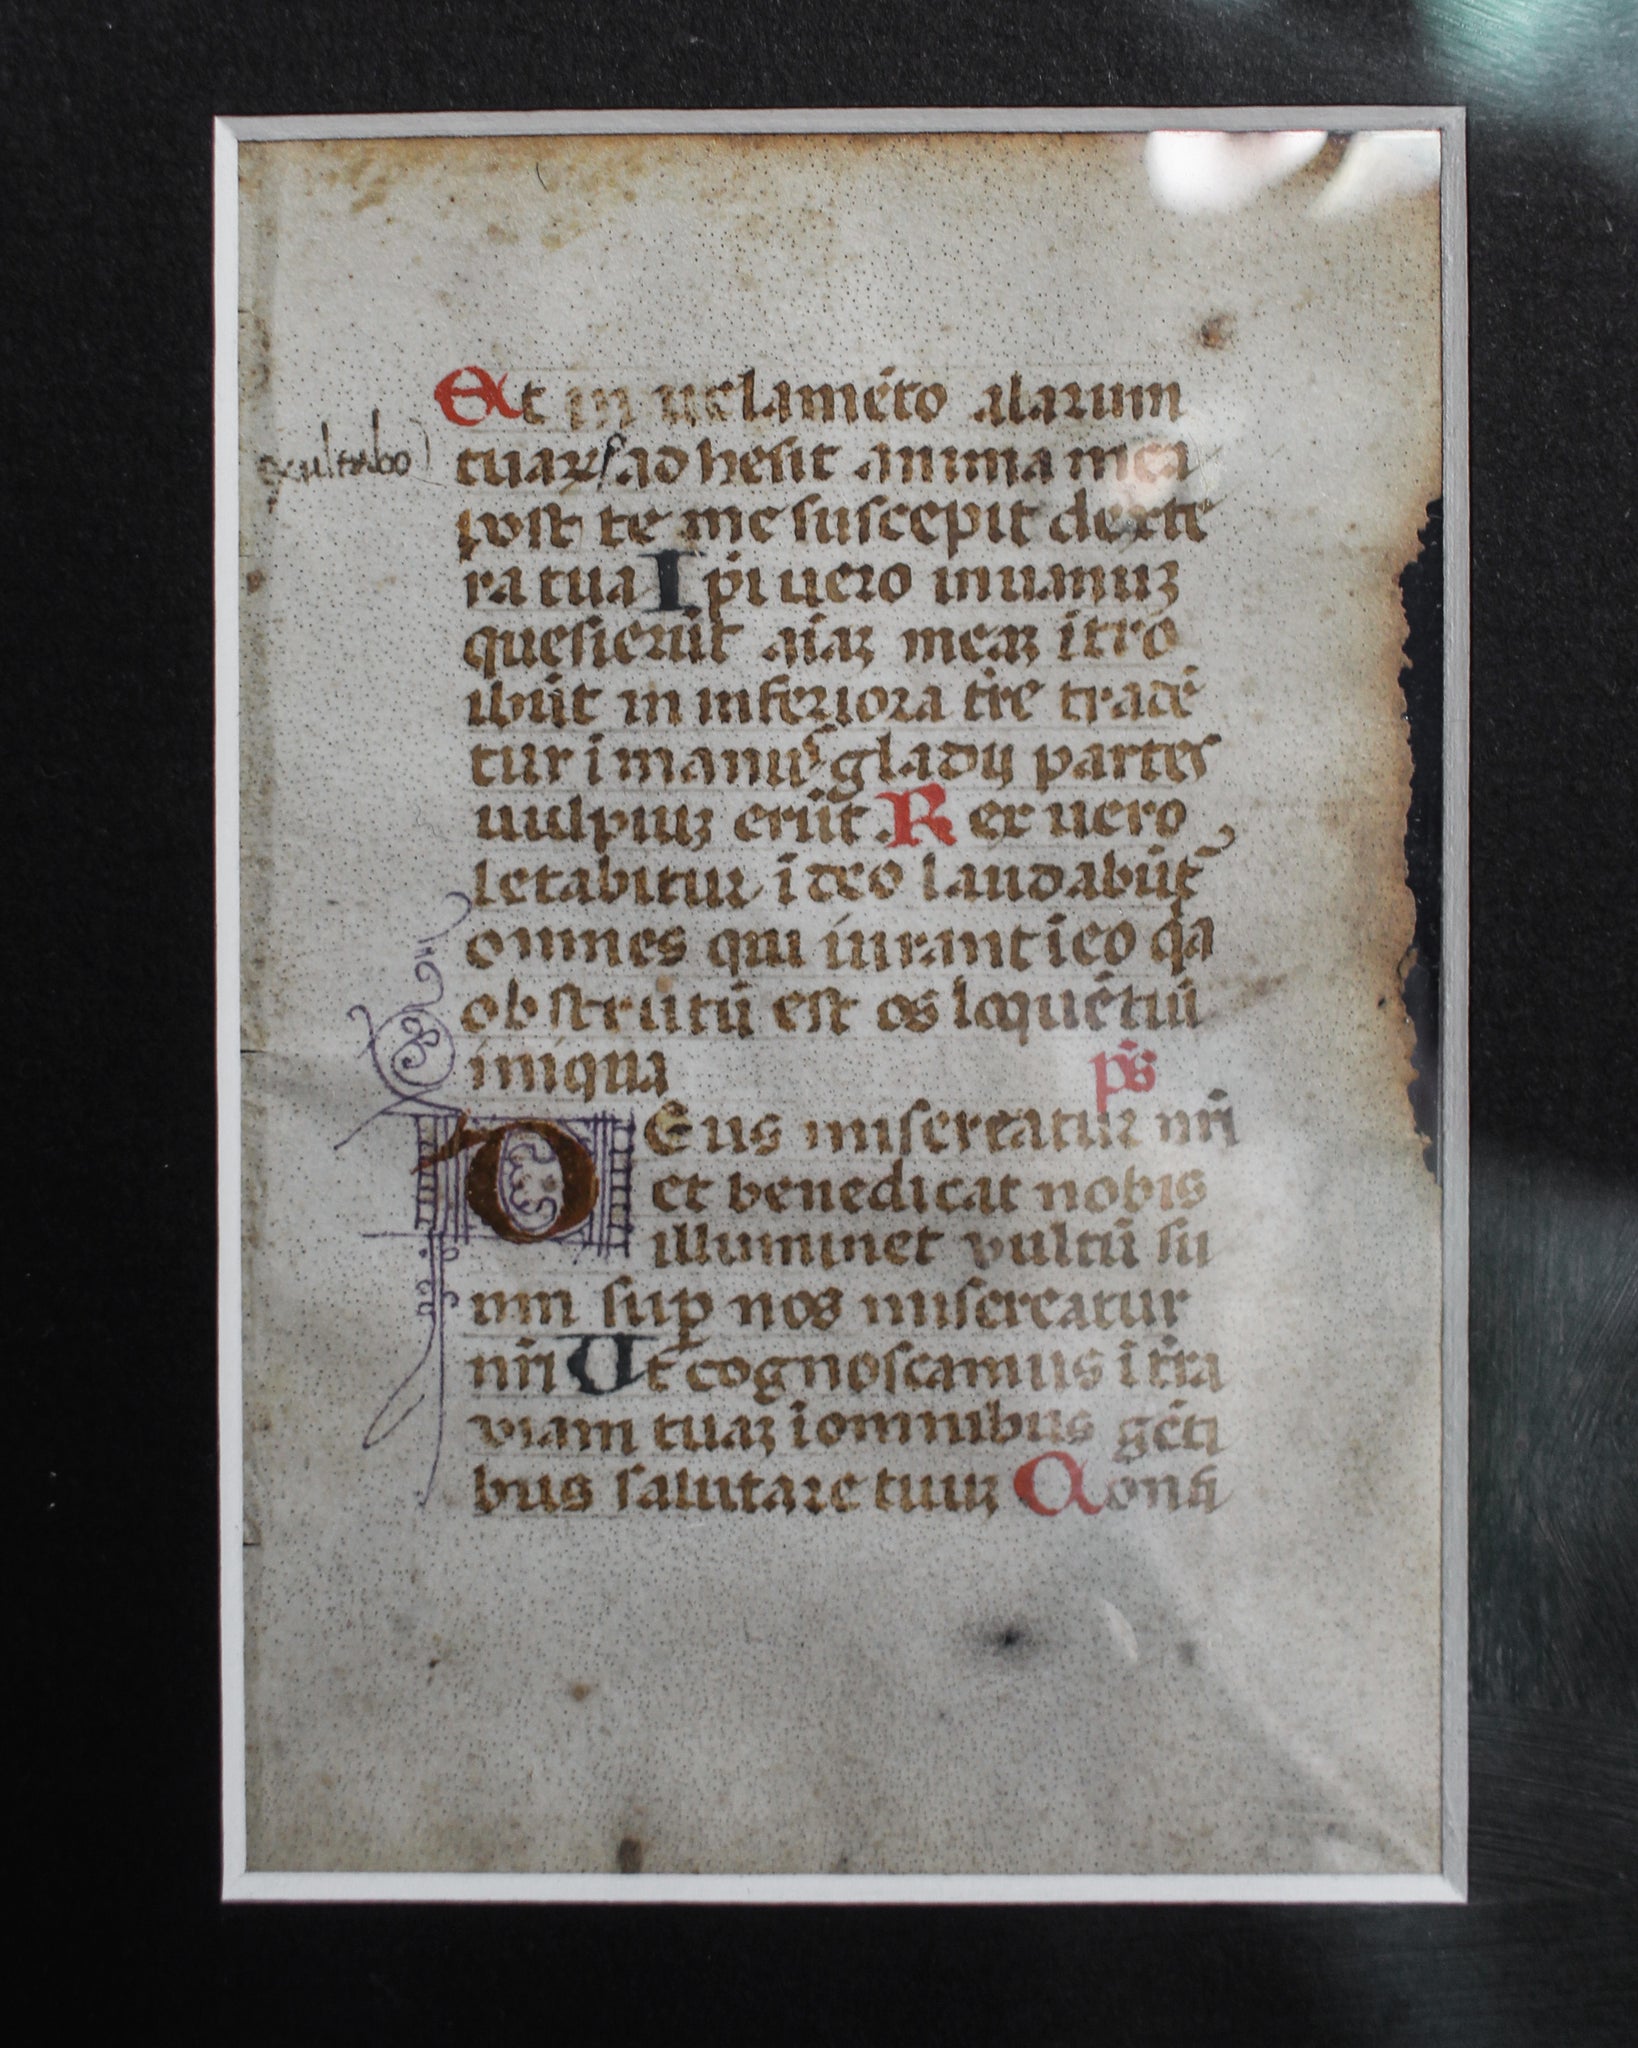 Et in uelamēto alarum
exultabo
tuaꝝ ad hesit anima mea
post te me suscepit dexte
ra tua Ip̄i uero inuanuꝫ
quesierūt aīaꝫ meaꝫ ītro
ibūt in inferiora tr̄e tradē
tur ī manus gladij partes
uulpiuꝫ erūt Rex uero
letabitur ī deo laudabūt᷑
omnes qui iurant ī eo qͥa
obstrutū est os loquētiū
iniqua
ps̄
DEus misereatur nr̄i
et benedicat nobis
illuminet vultū su
um suꝑ nos misereatur
nr̄i Ut cognoscamus ī tr̄ra
viam tuaꝫ ī omnibus gēti
bus salutare tuuꝫ Confi